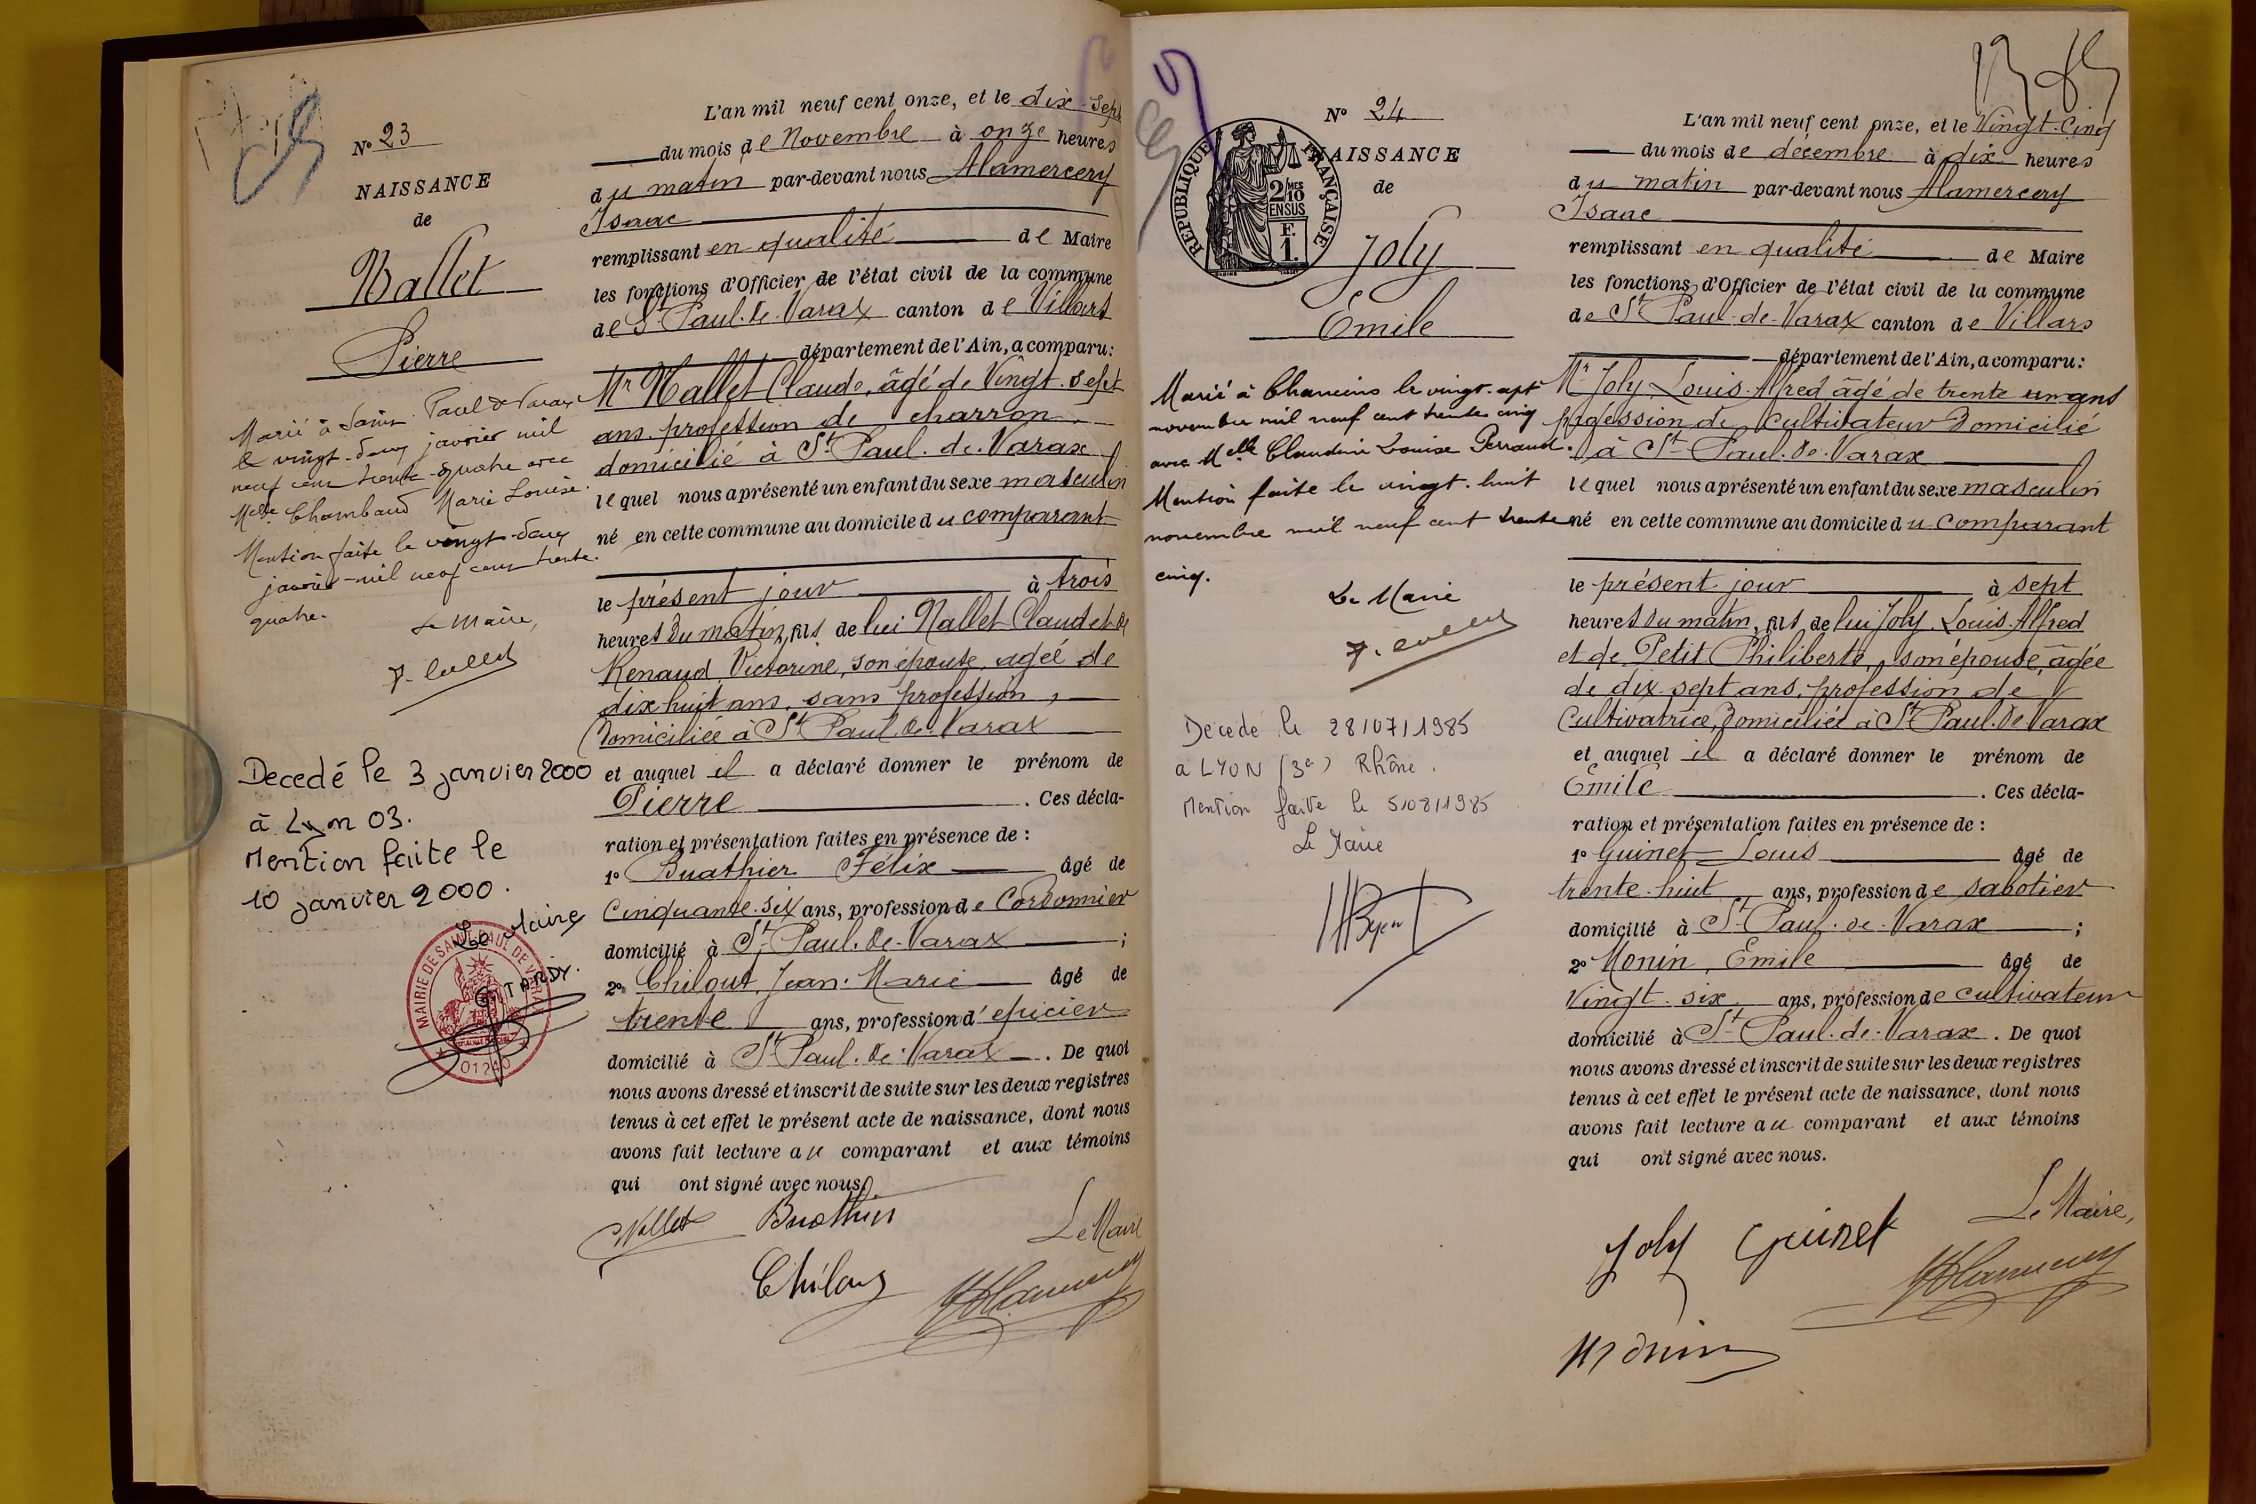 N° 23
NAISSANCE
de
Nallet
Pierre
Marié à Saint Paul de Varax
le vingt-deux janvier mil
neuf cent trente-quatre avec
Melle Chambaud Marie Louise.
Mention faite le vingt-deux
janvier mil neuf cent trente-
quatre.
Le Maire,
Decedé le 3 janvier 2000
à Lyon 03.
Mention faite le
10 janvier 2000.
Le Maire
G. TARDY.
MAIRIE DE SAINT PAUL DE VARAX
01240
L'an mil neuf cent onze, et le dix-sept
du mois de Novembre à onze heures
du matin par-devant nous Alamercery
Isaac
remplissant en qualité de Maire
les fonctions d'Officier de l'état civil de la commune
de St Paul-de-Varax canton de Villars
département de l'Ain, a comparu:
Mr Nallet Claude, âgé de Vingt-sept
ans profession de charron
domicilié à St Paul-de-Varax
lequel nous a présenté un enfant du sexe masculin
né en cette commune au domicile du comparant
le présent jour à trois
heures du matin, fils de lui Nallet Claude et de
Renaud Victorine, son épouse, agéé de
dix-huit ans, sans profession,
Domiciliée à St Paul de Varax
et auquel il a déclaré donner le prénom de
Pierre. Ces décla-
ration et présentation faites en présence de :
1° Buathier Félix âgé de
Cinquante-six ans, profession de Cordonnier
domicilié à St Paul-de-Varax ;
2° Chilout, Jean-Marie âgé de
trente ans, profession d'epicier
domicilié à St Paul-de-Varax. De quoi
nous avons dressé et inscrit de suite sur les deux registres
tenus à cet effet le présent acte de naissance, dont nous
avons fait lecture au comparant et aux témoins
qui ont signé avec nous.
Nallet Buathier
Le Maire
N° 24
NAISSANCE
de
RÉPUBLIQUE FRANÇAISE
2/10 MES
EN SUS
F.
1.
Joly
Emile
Marié à Chaneins le vingt-sept
novembre mil neuf cent trente cinq
avec Melle Claudine Louise Perraud.
Mention faite le vingt-huit
novembre mil neuf cent trente
cinq.
Le Maire
Décédé le 28/07/1985
à LYON (3e) Rhône.
Mention faite le 5/08/1985
Le Maire
L'an mil neuf cent onze, et le Vingt-Cinq
du mois de décembre à dix heures
du matin par-devant nous Alamercery
Isaac
remplissant en qualité de Maire
les fonctions d'Officier de l'état civil de la commune
de St Paul-de-Varax canton de Villars
département de l'Ain, a comparu:
Mr Joly Louis-Alfred âgé de trente un ans
profession de Cultivateur Domicilié
à St Paul-de-Varax
lequel nous a présenté un enfant du sexe masculin
né en cette commune au domicile du comparant
le présent jour à sept
heures du matin, fils de lui Joly Louis-Alfred
et de Petit Philiberte, son épouse, âgée
de dix-sept ans, profession de
Cultivatrice, Domiciliée à St Paul-de-Varax
et auquel il a déclaré donner le prénom de
Emile. Ces décla-
ration et présentation faites en présence de :
1° Guinet Louis âgé de
trente-huit ans, profession de sabotier
domicilié à St Paul-de-Varax ;
2° Monin, Emile âgé de
Vingt-six ans, profession de cultivateur
domicilié à St Paul-de-Varax. De quoi
nous avons dressé et inscrit de suite sur les deux registres
tenus à cet effet le présent acte de naissance, dont nous
avons fait lecture au comparant et aux témoins
qui ont signé avec nous.
Le Maire,
Joly Guinet
Monin